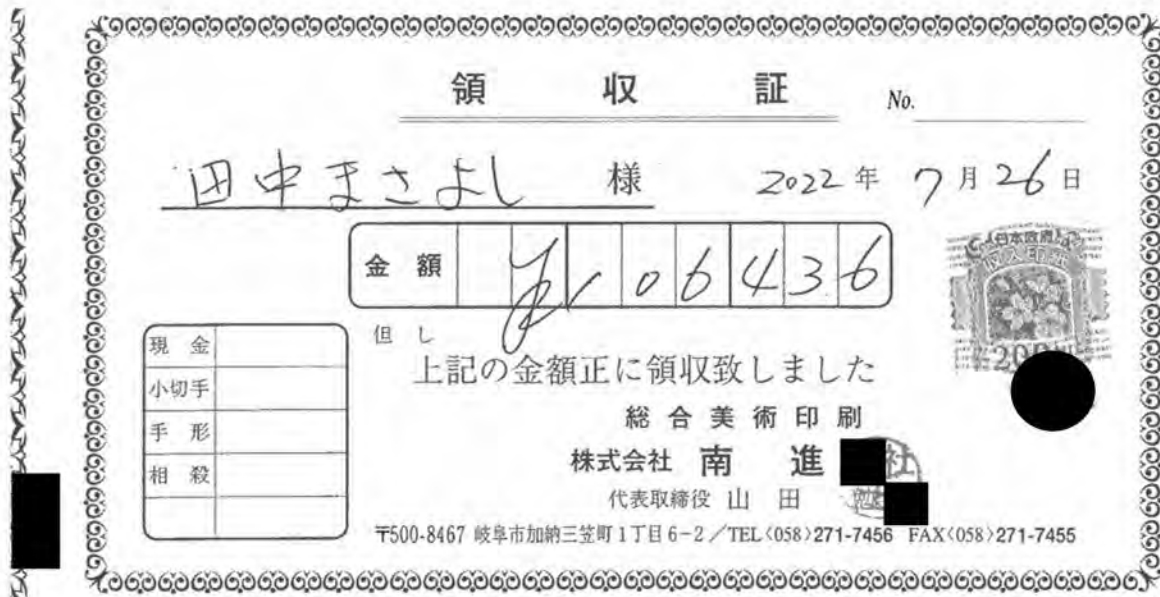 領 収 証 No.
田中まさよし 様 2022年 7月26日
金額 ¥106436
日本政府
収入印紙
200
但し
上記の金額正に領収致しました
現金
小切手
手形
相殺
総合美術印刷
株式会社 南 進
代表取締役 山 田
〒500-8467 岐阜市加納三笠町1丁目6-2/TEL〈058〉271-7456 FAX〈058〉271-7455